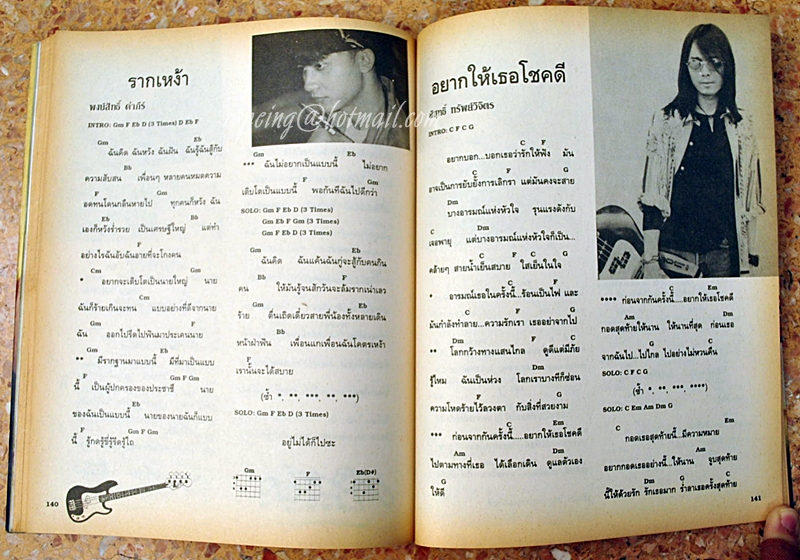 รากเหง้า
พงษ์สิทธิ์ คำภีร์
INTRO: Gm F Eb D (3 Times) D Eb F
Gm Eb
ฉันคิด ฉันหวัง ฉันฝัน ฉันรู้ฉันสู้กับ
Bb
ความสับสน เพื่อนๆ หลายคนหมดความ
F Gm
อดทนโดนกลืนหายไป ทุกคนก็หวัง ฉัน
Eb Bb
เองก็หวังร่ำรวย เป็นเศรษฐีใหญ่ แต่ทำ
F
อย่างไรฉันอับฉันอายที่จะโกงคน
Cm Gm
* อยากจะเติบโตเป็นนายใหญ่ นาย
Cm
ฉันก็ร้ายเกินจะทน แบบอย่างที่ดีจากนาย
Gm F
ฉัน ออกไปรีดไปพ้นมาประเคนนาย
Gm Eb
** มีรากฐานมาแบบนี้ มีที่มาเป็นแบบ
F Gm F Gm
นี้ เป็นผู้ปกครองของประชาชี นาย
Eb
ของฉันเป็นแบบนี้ นายของนายฉันก็แบบ
F Gm F Gm
นี้ รู้กดรู้ขี่รู้รีดรู้ไถ
140
Gm Eb
*** ฉันไม่อยากเป็นแบบนี้ ไม่อยาก
F Gm
เติบโตเป็นแบบนี้ พอกันทีฉันไปดีกว่า
SOLO: Gm F Eb D (3 Times)
Gm Eb F Gm (3 Times)
Gm F Eb D (3 Times)
Gm Eb
ฉันคิด ฉันแค้นฉันกู่จะสู้กับคนกิน
Bb F
คน ให้มันรู้จนสักวันจะล้มรากเน่าเลว
Gm Eb
ร้าย ตื่นเถิดเดี๋ยวสายพี่น้องทั้งหลายเดิน
Bb
หน้าฝ่าฟัน เพื่อนแกเพื่อนฉันโคตรเหงา
F
เรานั้นจะได้สบาย
(ซ้ำ *, **, ***, **, ***)
SOLO: Gm F Eb D (3 Times)
อยู่ไม่ได้ก็ไปซะ
Gm F Eb(D#)
ncing@hotmail.com
อยากให้เธอโชคดี
ทรัพย์วิจิตร
INTRO: C F C G
C F
อยากบอก...บอกเธอว่ารักให้ฟัง มัน
C F G
อาจเป็นการยับยั้งการเลิกรา แต่มันคงจะสาย
Dm
บางอารมณ์แห่งหัวใจ รุนแรงดังกับ
C Dm
เจอพายุ แต่บางอารมณ์แห่งหัวใจก็เป็น...
F C G
คล้ายๆ สายน้ำเย็นสบาย ใสเย็นในใจ
C F
* อารมณ์เธอในครั้งนี้...ร้อนเป็นไฟ และ
C F G
มันกำลังทำลาย...ความรักเรา เธออย่าจากไป
Dm F C
** โลกกว้างทางแสนไกล ดูดีแต่มีภัย
G Dm
รู้ไหม ฉันเป็นห่วง โลกเราบางทีก็ซ่อน
F G
ความโหดร้ายไว้ลวงตา กับสิ่งที่สวยงาม
C Em
*** ก่อนจากกันครั้งนี้....อยากให้เธอโชคดี
Am Dm
ไปตามทางที่เธอ ได้เลือกเดิน ดูแลตัวเอง
G
ให้ดี
C Em
**** ก่อนจากกันครั้งนี้....อยากให้เธอโชคดี
Am Dm
กอดสุดท้ายให้นาน ให้นานที่สุด ก่อนเธอ
G C
จากฉันไป...ไปไกล ไปอย่างไม่หวนคืน
SOLO: C F C G
(ซ้ำ *, **, ***, ****)
SOLO: C Em Am Dm G
C Em
กอดเธอสุดท้ายนี้...มีความหมาย
Am Dm
อยากกอดเธออย่างนี้...ให้นาน จูบสุดท้าย
G C
นี้ให้ด้วยรัก รักเธอมาก ร่ำลาเธอครั้งสุดท้าย
141